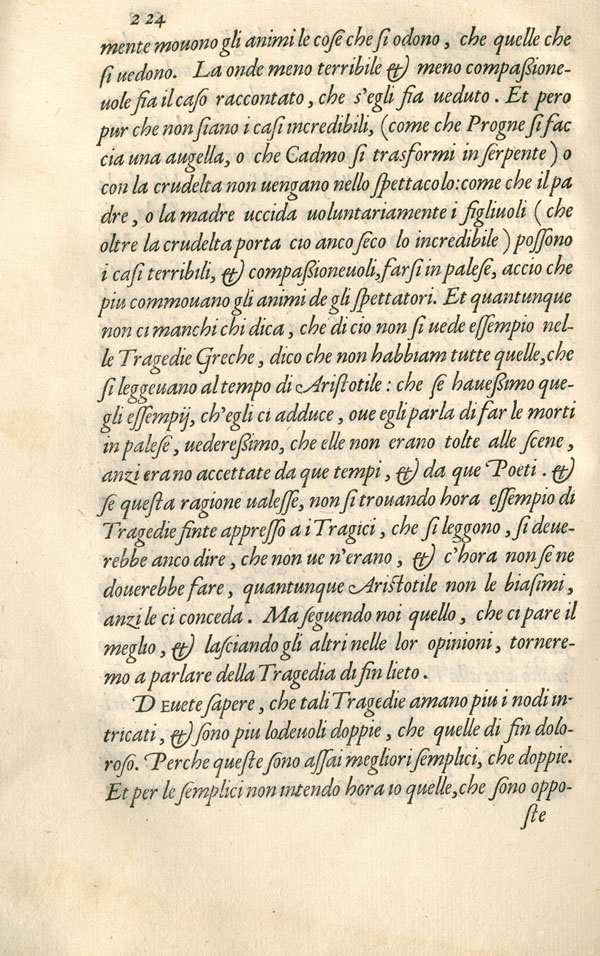 224
mente mouono gli animi le coſe che ſi odono, che quelle che
ſi uedono. La onde meno terribile & meno compaßione-
uole fia il caſo raccontato, che s'egli fia ueduto. Et pero
pur che non ſiano i caſi incredibili, (come che Progne ſi fac
cia una augella, o che Cadmo ſi trasformi in ſerpente) o
con la crudelta non uengano nello ſpettacolo: come che il pa
dre, o la madre uccida uoluntariamente i figliuoli (che
oltre la crudelta porta cio anco ſeco lo incredibile) poſſono
i caſi terribili, & compaßioneuoli, farſi in paleſe, accio che
piu commouano gli animi de gli ſpettatori. Et quantunque
non ci manchi chi dica, che di cio non ſi uede eſſempio nel-
le Tragedie Greche, dico che non habbiam tutte quelle, che
ſi leggeuano al tempo di Ariſtotile: che ſe haueßimo que-
gli eſſempij, ch'egli ci adduce, oue egli parla di far le morti
in paleſe, uedereßimo, che elle non erano tolte alle ſcene,
anzi erano accettate da que tempi, & da que Poeti. &
ſe queſta ragione ualeſſe, non ſi trouando hora eſſempio di
Tragedie finte appreſſo a i Tragici, che ſi leggono, ſi deue-
rebbe anco dire, che non ue n'erano, & c'hora non ſe ne
douerebbe fare, quantunque Ariſtotile non le biaſimi,
anzi le ci conceda. Ma ſeguendo noi quello, che ci pare il
meglio, & laſciando gli altri nelle lor opinioni, tornere-
mo a parlare della Tragedia di fin lieto.
DEuete ſapere, che tali Tragedie amano piu i nodi in-
tricati, & ſono piu lodeuoli doppie, che quelle di fin dolo-
roſo. Perche queſte ſono aſſai megliori ſemplici, che doppie.
Et per le ſemplici non intendo hora io quelle, che ſono oppo-
ſte